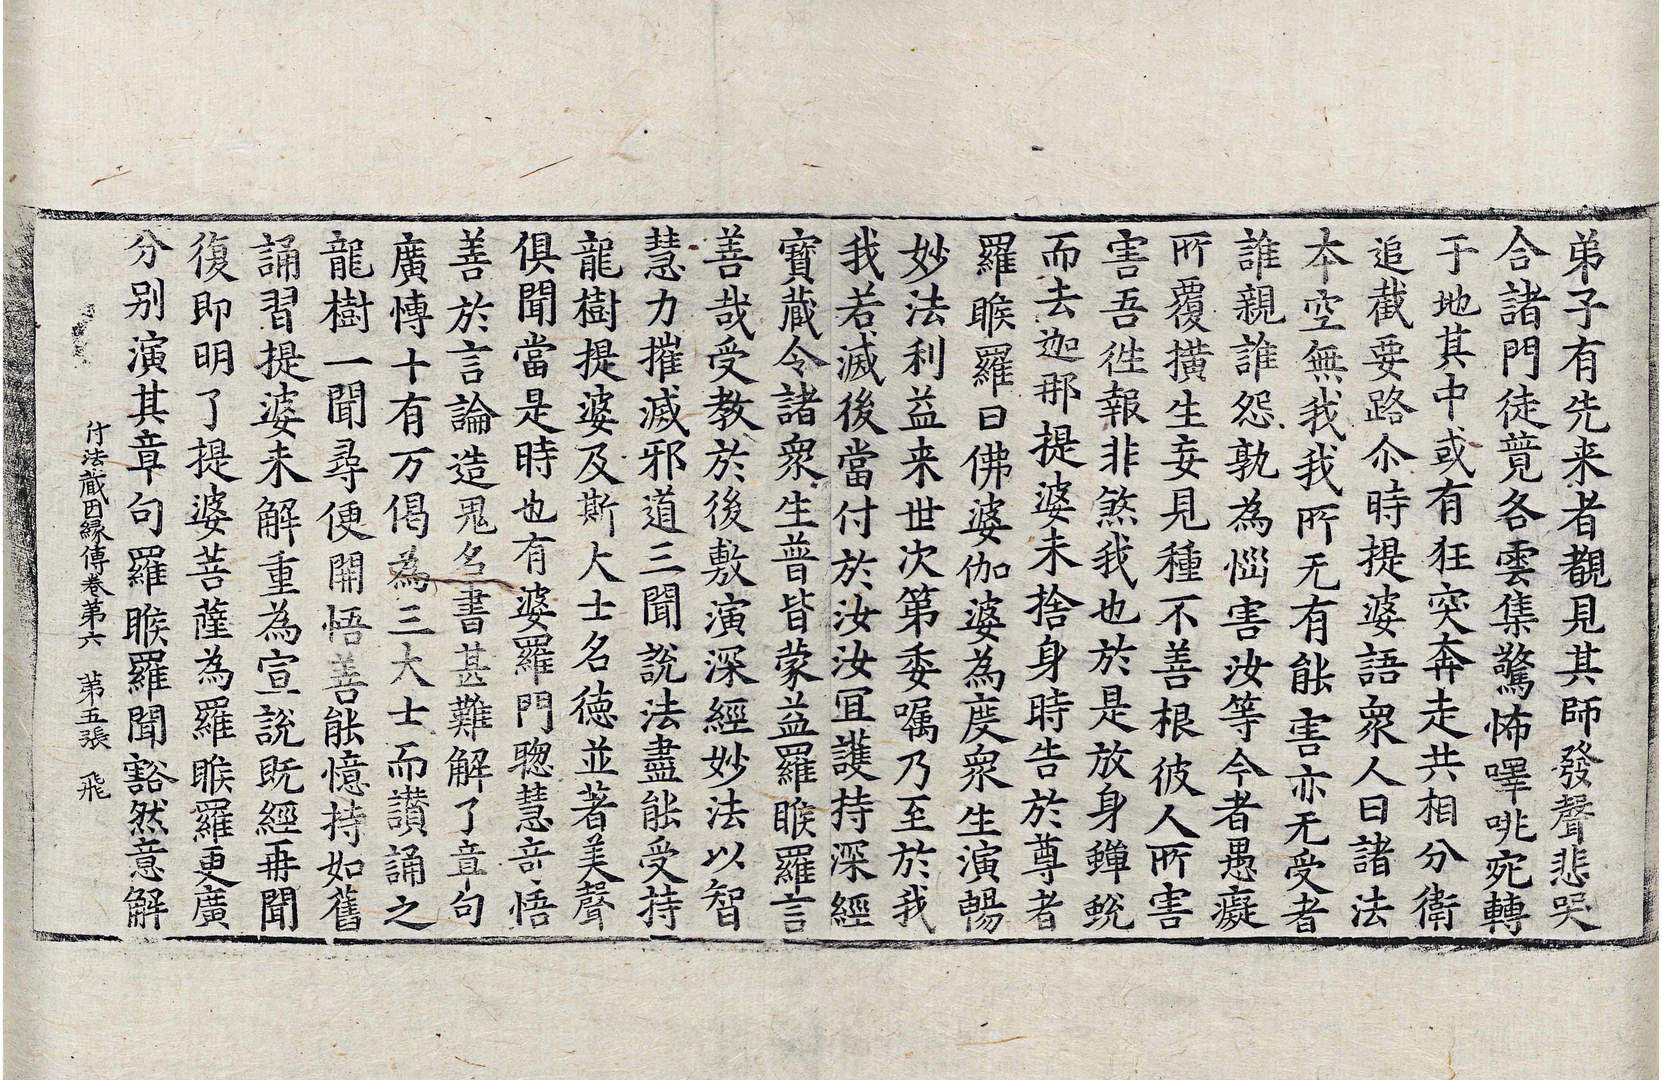 弟子有先来者覩見其師發聲悲哭
合諸門徒竟各雲集驚怖嗶咷宛轉
于地其中或有狂突奔走共相分衛
追截要路尒時提婆語衆人曰諸法
本空無我我所无有能害亦无受者
誰親誰怨孰為惱害汝等今者愚癡
所覆横生妄見種不善根彼人所害
害吾徃報非煞我也於是放身蟬蛻
而去迦那提婆未捨身時告於尊者
羅睺羅曰佛婆伽婆為度衆生演暢
妙法利益来世次第委嘱乃至於我
我若滅後當付於汝汝冝護持深經
寶藏令諸衆生普皆蒙益羅睺羅言
善哉受教於後敷演深經妙法以智
慧力摧滅邪道三聞說法盡能受持
龍樹提婆及斯大士名徳並著美聲
俱聞當是時也有婆羅門聦慧竒悟
善於言論造鬼名書甚難解了章句
廣博十有万偈為三大士而讃誦之
龍樹一聞尋便開悟善能憶持如舊
誦習提婆未解重為宣說既經再聞
復即明了提婆菩薩為羅睺羅更廣
分别演其章句羅睺羅聞豁然意解
付法藏因縁傳卷第六　第五張　飛